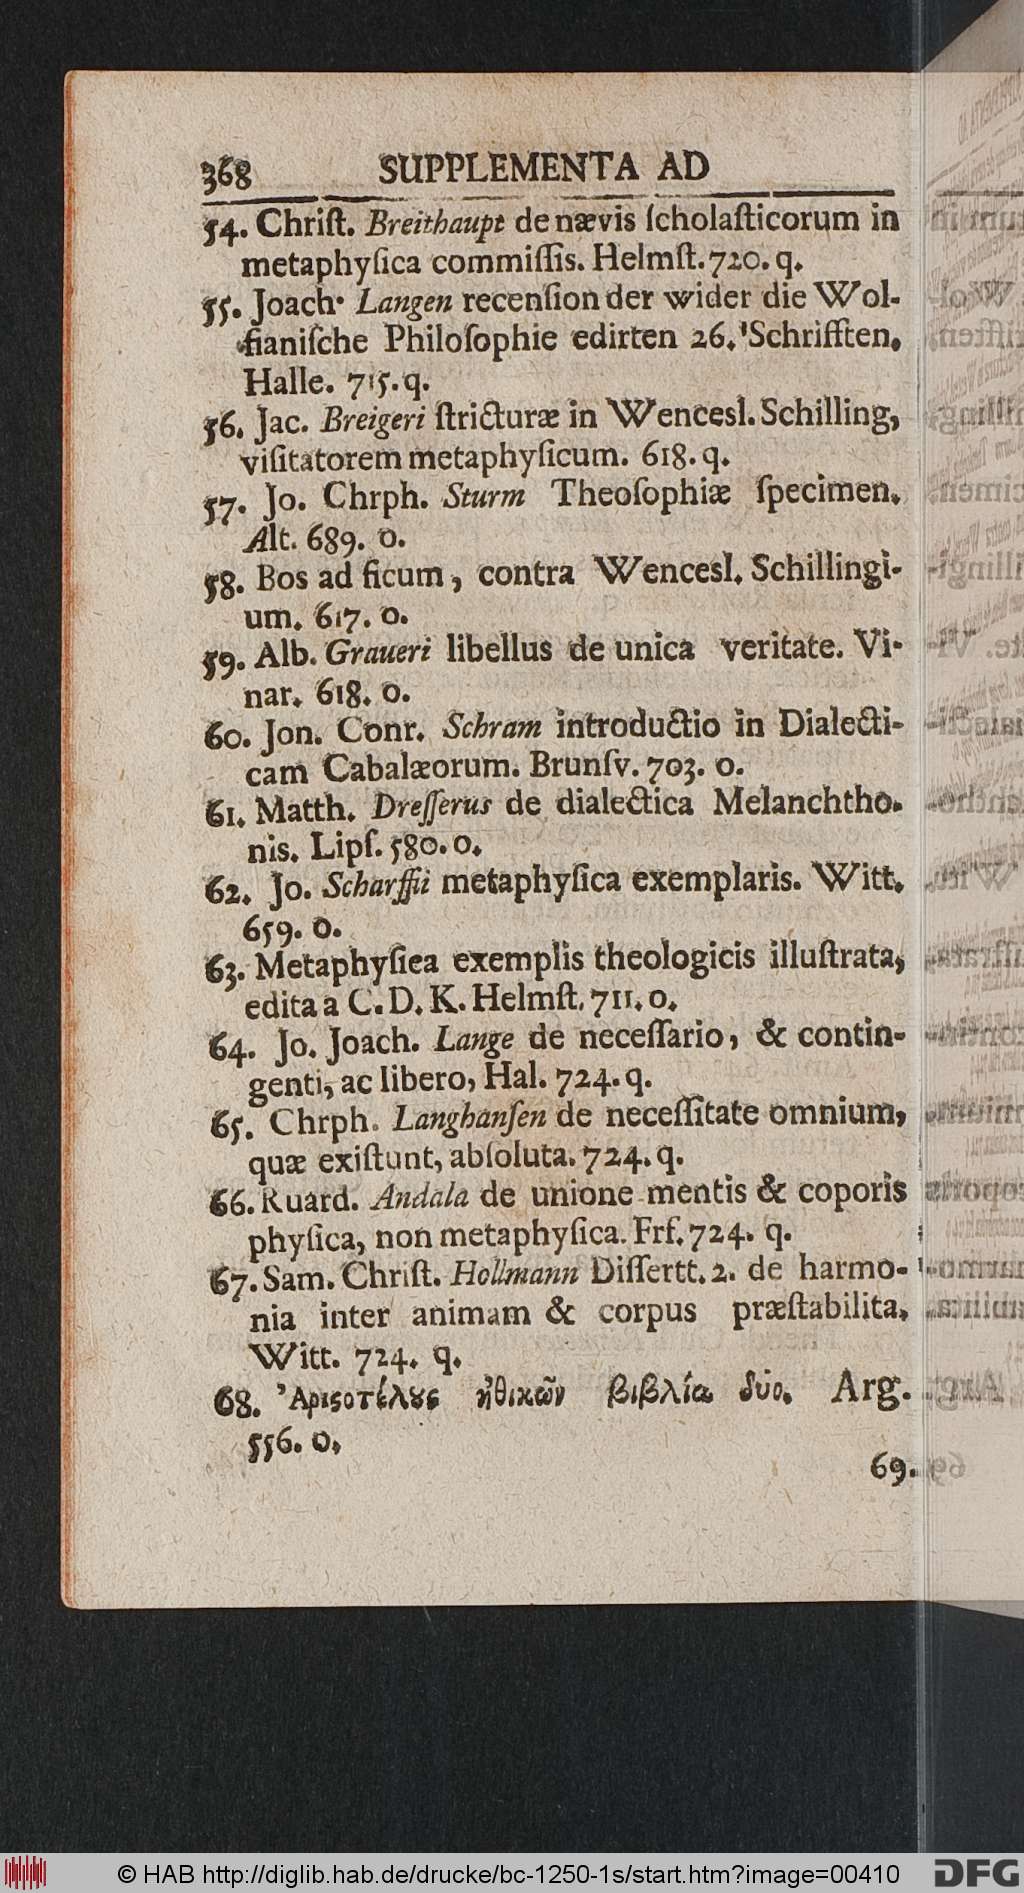 368 SUPPLEMENTA AD
54. Chriſt. Breithaupt de nævis ſcholaſticorum in
metaphyſica commiſſis. Helmſt. 720. q.
55. Joach. Langen recenſion der wider die Wol-
fianiſche Philoſophie edirten 26. Schrifften,
Halle. 715. q.
56. Jac. Breigeri ſtricturæ in Wencesl. Schilling,
viſitatorem metaphyſicum. 618. q.
57. Jo. Chrph. Sturm Theoſophiæ ſpecimen.
Alt. 689. o.
58. Bos ad ficum, contra Wencesl. Schillingi-
um. 617. o.
59. Alb. Graueri libellus de unica veritate. Vi-
nar. 618. o.
60. Jon. Conr. Schram introductio in Dialecti-
cam Cabalæorum. Brunſv. 703. o.
61. Matth. Dreſſerus de dialectica Melanchtho-
nis. Lipſ. 580. o.
62. Jo. Scharffii metaphyſica exemplaris. Witt.
659. o.
63. Metaphyſica exemplis theologicis illuſtrata,
edita a C. D. K. Helmſt. 711. o.
64. Jo. Joach. Lange de neceſſario, & contin-
genti, ac libero, Hal. 724. q.
65. Chrph. Langhanſen de neceſſitate omnium,
quæ exiſtunt, abſoluta. 724. q.
66. Ruard. Andala de unione mentis & coporis
phyſica, non metaphyſica. Frf. 724. q.
67. Sam. Chriſt. Hollmann Diſſertt. 2. de harmo-
nia inter animam & corpus præſtabilita.
Witt. 724. q.
68. Ἀριϛοτέλȣς ἠθικῶν βιβλία δύο. Arg.
556. o.
69.
© HAB http://diglib.hab.de/drucke/bc-1250-1s/start.htm?image=00410
DFG